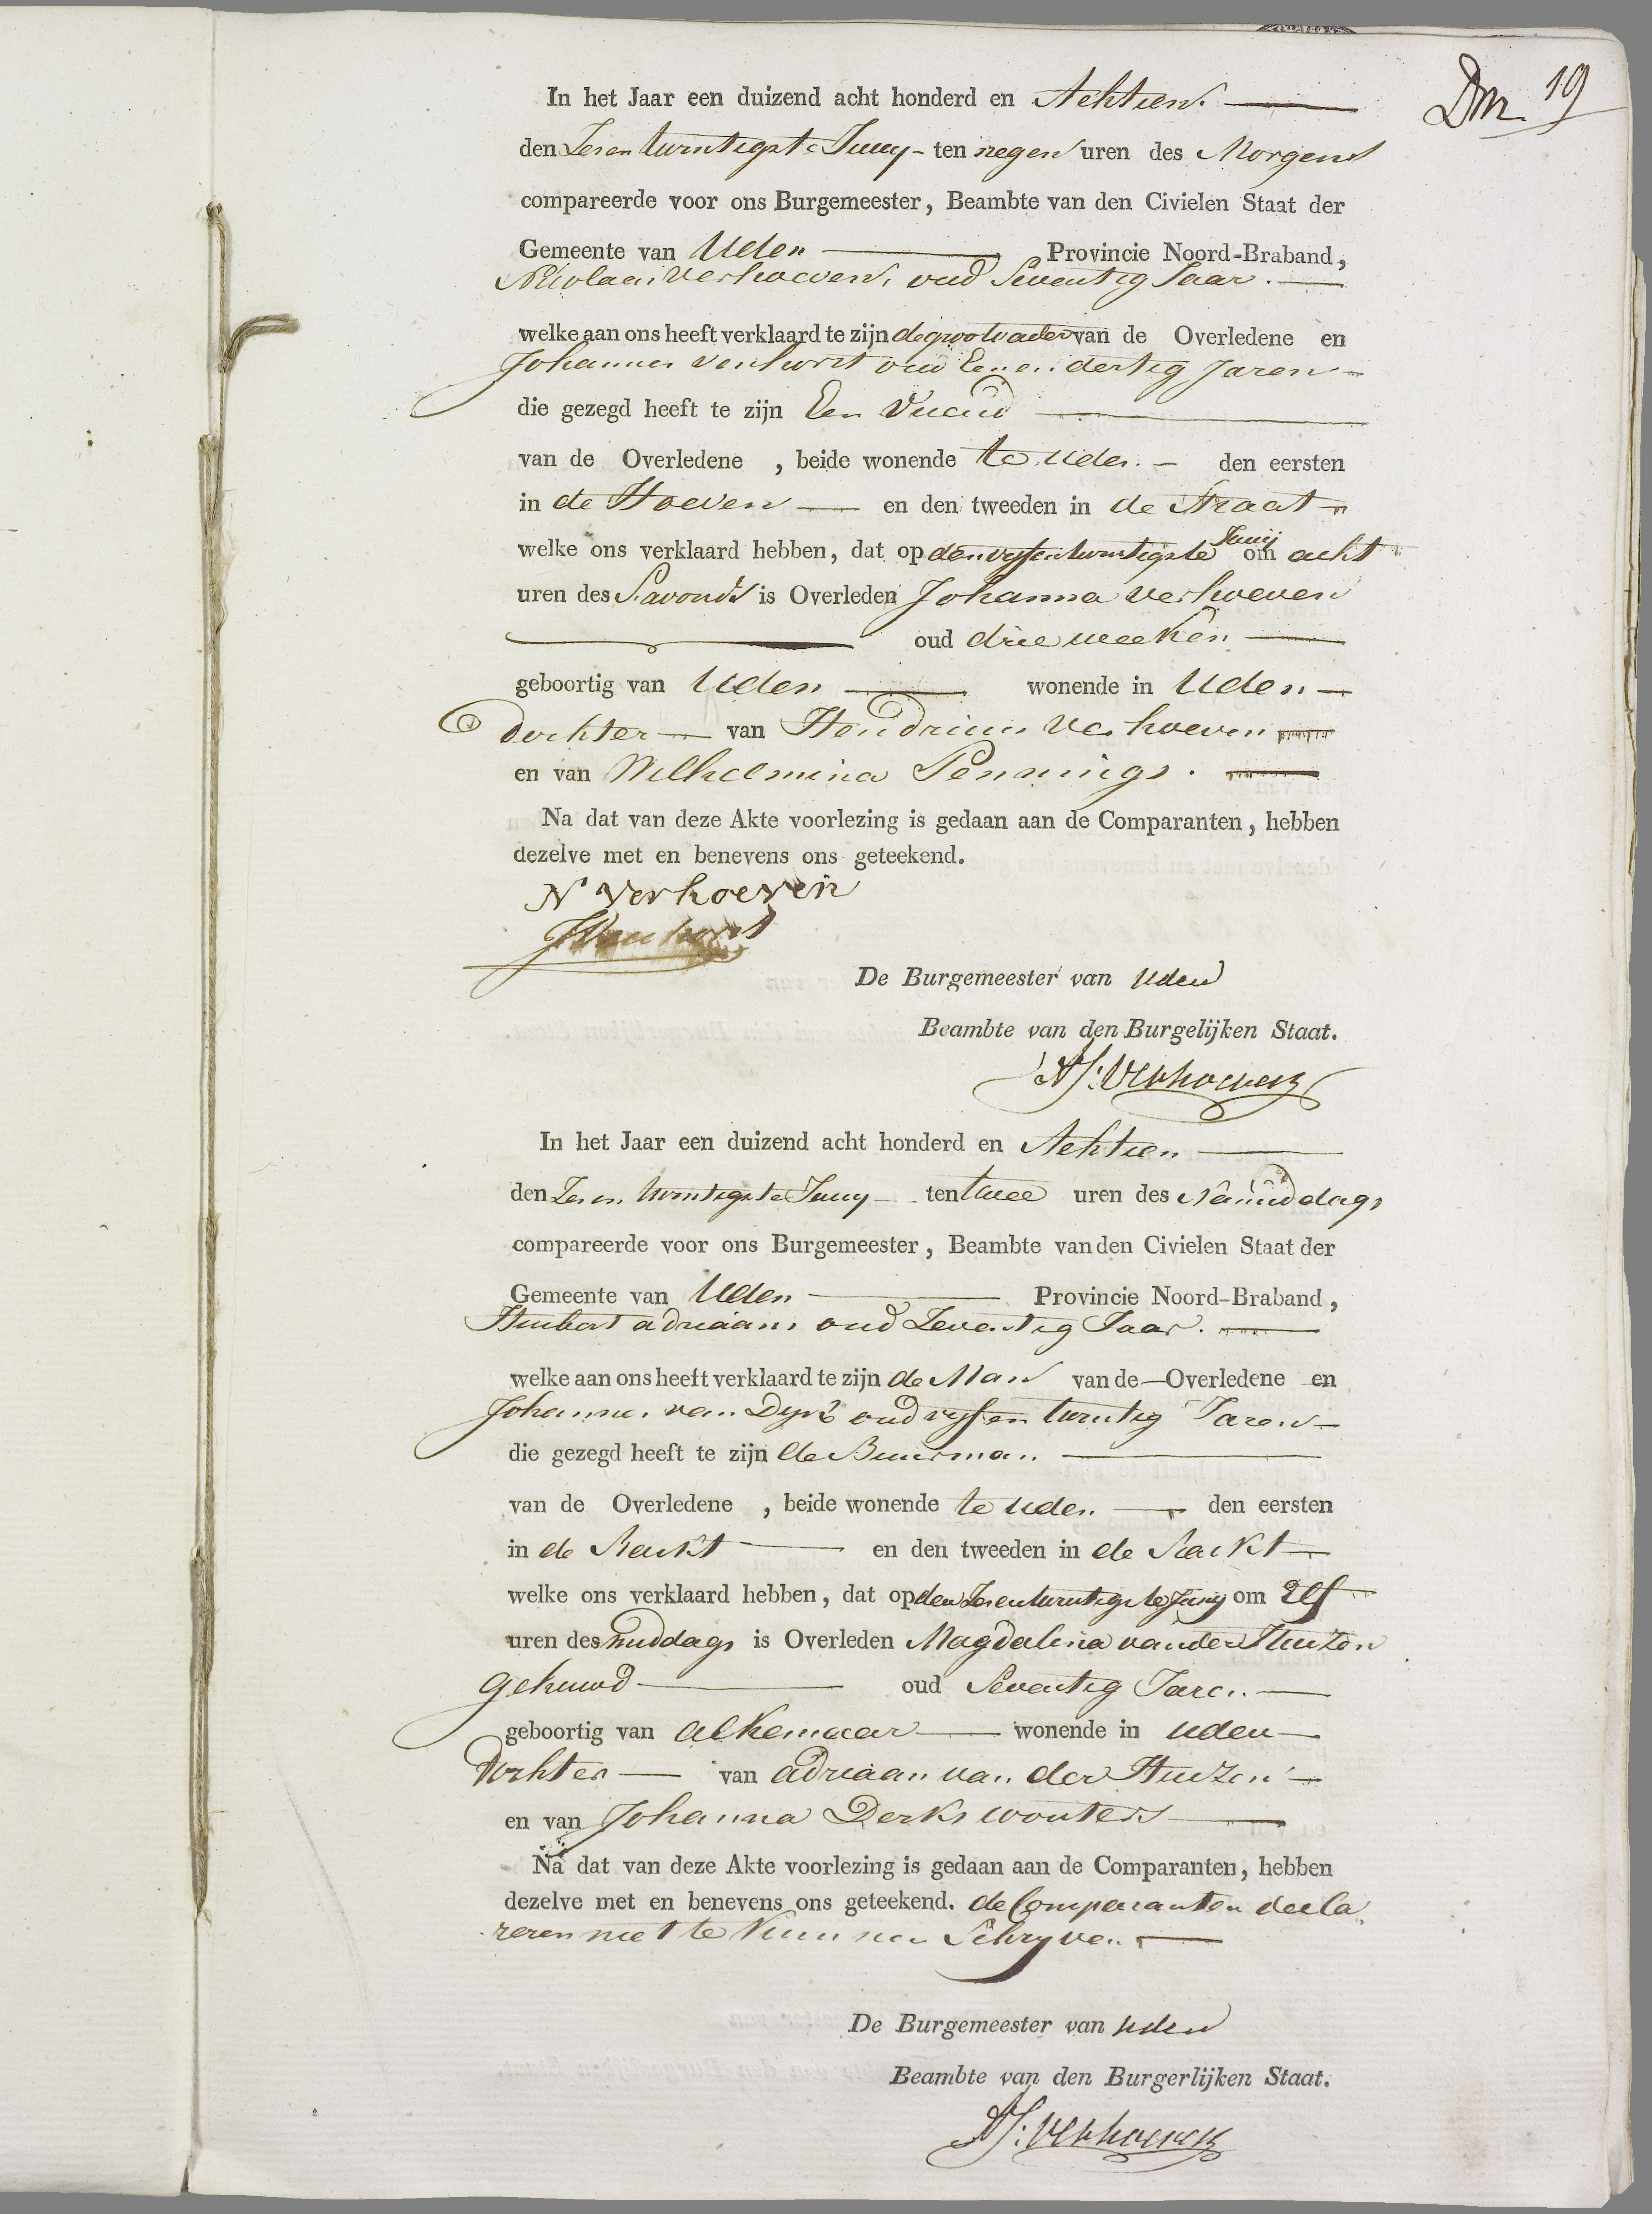 Dm 19
In het Jaar een duizend acht honderd en Achtien.
den Zes en twintigste Juny - ten negen uren des Morgens
compareerde voor ons Burgemeester, Beambte van den Civielen Staat der
Gemeente van Uden Provincie Noord-Braband,
Nikolaas Verhoeven, oud Seventig Jaar.
welke aan ons heeft verklaard te zijn de grootvader van de Overledene en
Johannes Venhorst oud Een en dertig Jaren
die gezegd heeft te zijn Een Vriend
van de Overledene, beide wonende te Uden. den eersten
in de Hoeven en den tweeden in de Straat
welke ons verklaard hebben, dat op den vyf en twintigste Juny om acht
uren des Savonds is Overleden Johanna Verhoeven
oud drie weeken
geboortig van Uden wonende in Uden
Dochter van Hendricus Verhoeven
en van Wilhelmina Pennings.
Na dat van deze Akte voorlezing is gedaan aan de Comparanten, hebben
dezelve met en benevens ons geteekend.
N Verhoeven
J Venhorst
De Burgemeester van Uden
Beambte van den Burgelijken Staat.
Verhoeven
In het Jaar een duizend acht honderd en Achtien
den Zes en twintigste Juny ten twee uren des Namiddags
compareerde voor ons Burgemeester, Beambte van den Civielen Staat der
Gemeente van Uden Provincie Noord-Braband,
Huibert adriaans oud Zeventig Jaar.
welke aan ons heeft verklaard te zijn de Man van de Overledene en
Johannes van Dyk oud vyf en twintig Jaren
die gezegd heeft te zijn de Buurman
van de Overledene, beide wonende te Uden den eersten
in de Raukt en den tweeden in de Raukt
welke ons verklaard hebben, dat op den Zes en twintigste Juny om Elf
uren des middags is Overleden Magdalena van der Huizen
gehuwd oud Seventig Jaren
geboortig van alkemaar wonende in Uden
Dochter van adriaan van der Huizen
en van Johanna Derks wouters
Na dat van deze Akte voorlezing is gedaan aan de Comparanten, hebben
dezelve met en benevens ons geteekend. de Comparanten decla
reren niet te kunnen Schryven
De Burgemeester van Uden
Beambte van den Burgerlijken Staat.
Verhoeven